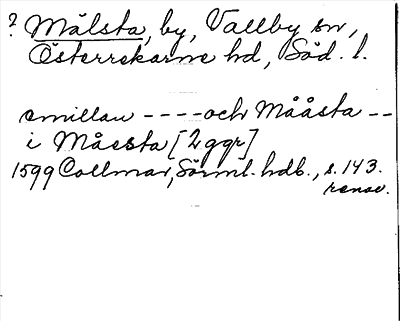 ? Målsta, by, Vallby sn,
Österrekarne hd, Söd. l.
emillan ----och Mååsta --
i Måssta [2 ggr]
1599 Collmar, Sörml. hdb., s. 143.
renov.